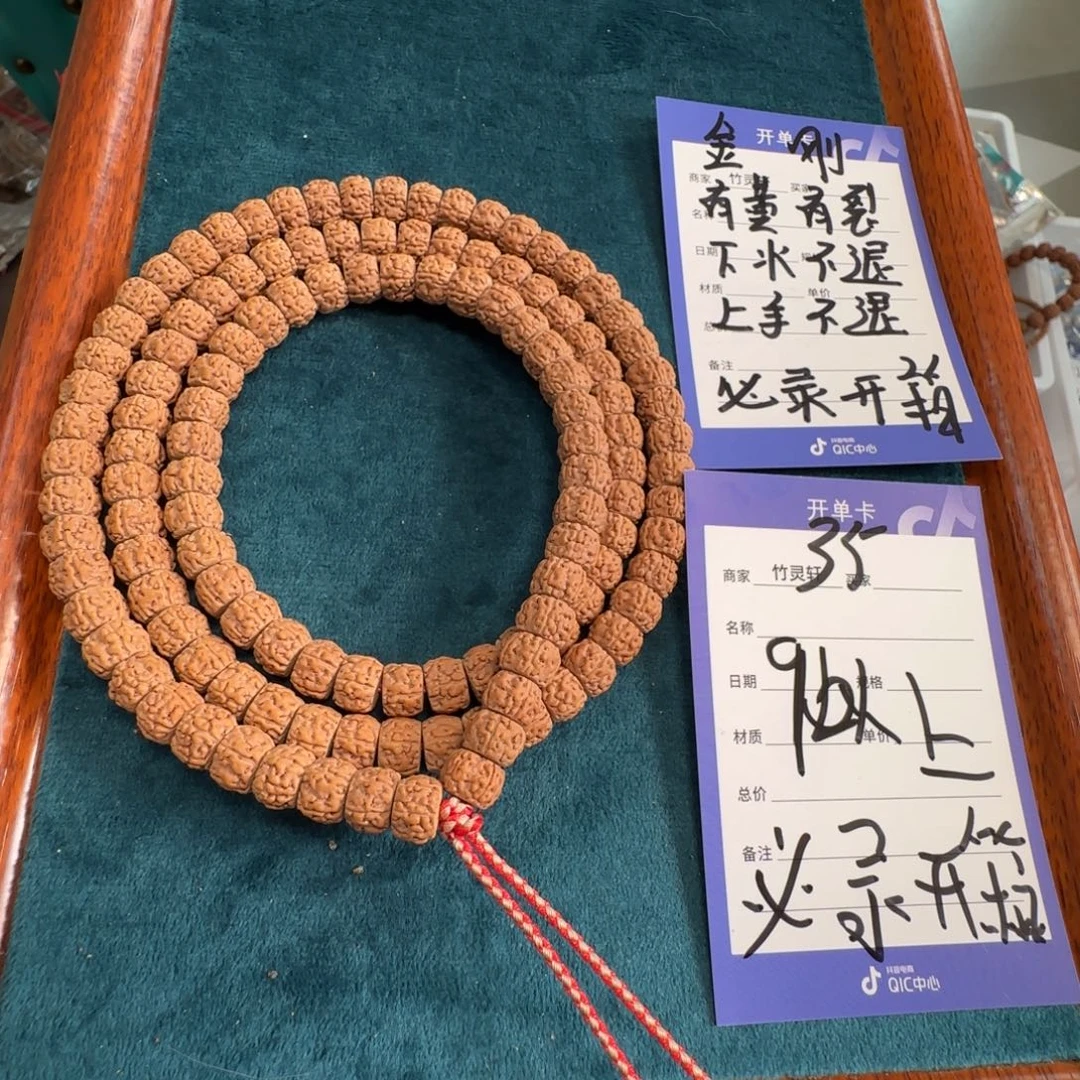 开单卡
金刚
商家 竹灵轩 买家
有董有裂
名称
下水不退
日期
材质 单价
上手不退
备注
必录开箱
抖音电商
QIC中心
开单卡
35
商家 竹灵轩 买家
名称
日期 规格
9以上
材质 单价
总价
备注
必录开箱
抖音电商
QIC中心